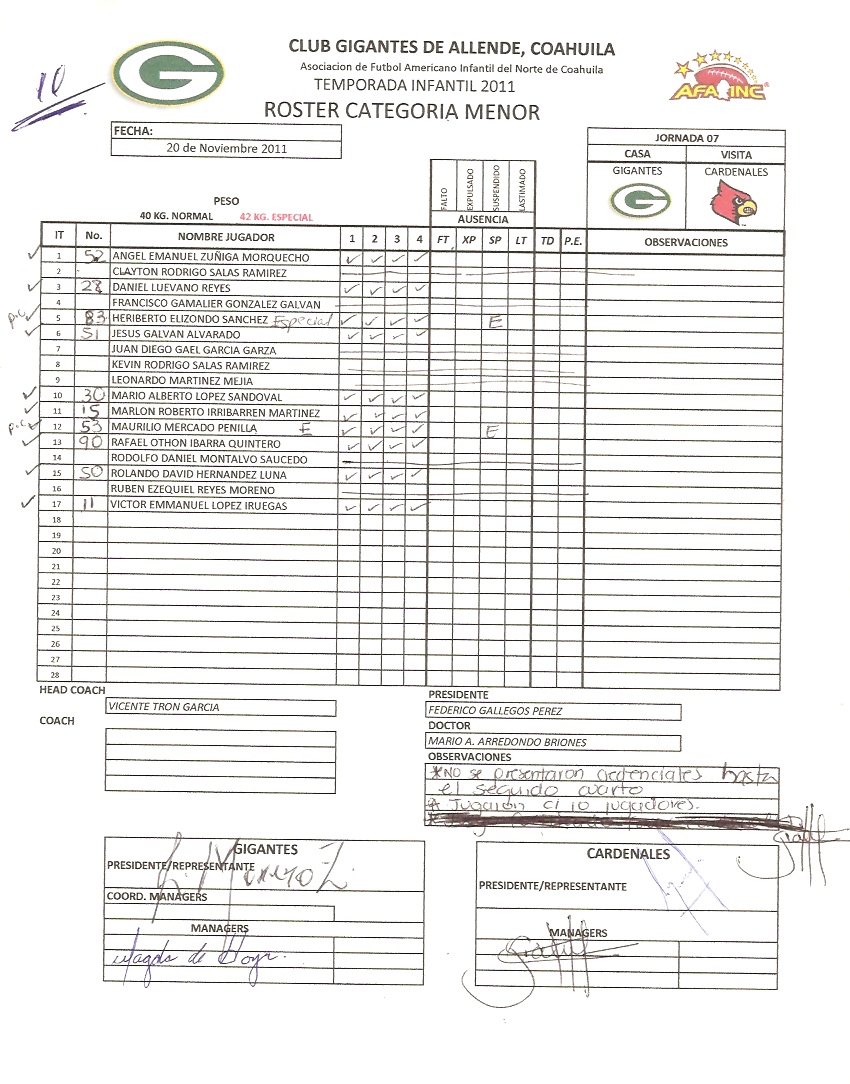 CLUB GIGANTES DE ALLENDE, COAHUILA
Asociacion de Futbol Americano Infantil del Norte de Coahuila
TEMPORADA INFANTIL 2011
ROSTER CATEGORIA MENOR
10
G
AFAINC
FECHA:
20 de Noviembre 2011
JORNADA 07
CASA VISITA
GIGANTES CARDENALES
G
FALTO EXPULSADO SUSPENDIDO LASTIMADO
PESO
40 KG. NORMAL 42 KG. ESPECIAL
AUSENCIA
IT No. NOMBRE JUGADOR 1 2 3 4 FT XP SP LT TD P.E. OBSERVACIONES
✓ 1 52 ANGEL EMANUEL ZUÑIGA MORQUECHO ✓ ✓ ✓ ✓
2 CLAYTON RODRIGO SALAS RAMIREZ
✓ 3 28 DANIEL LUEVANO REYES ✓ ✓ ✓ ✓
4 FRANCISCO GAMALIER GONZALEZ GALVAN
p.c ✓ 5 83 HERIBERTO ELIZONDO SANCHEZ Especial ✓ ✓ ✓ ✓ E
✓ 6 51 JESUS GALVAN ALVARADO ✓ ✓ ✓ ✓
7 JUAN DIEGO GAEL GARCIA GARZA
8 KEVIN RODRIGO SALAS RAMIREZ
9 LEONARDO MARTINEZ MEJIA
✓ 10 30 MARIO ALBERTO LOPEZ SANDOVAL ✓ ✓ ✓ ✓
✓ 11 15 MARLON ROBERTO IRRIBARREN MARTINEZ ✓ ✓ ✓ ✓
p.c ✓ 12 53 MAURILIO MERCADO PENILLA E ✓ ✓ ✓ ✓ E
✓ 13 90 RAFAEL OTHON IBARRA QUINTERO ✓ ✓ ✓ ✓
14 RODOLFO DANIEL MONTALVO SAUCEDO
✓ 15 50 ROLANDO DAVID HERNANDEZ LUNA ✓ ✓ ✓ ✓
16 RUBEN EZEQUIEL REYES MORENO
✓ 17 11 VICTOR EMMANUEL LOPEZ IRUEGAS ✓ ✓ ✓ ✓
18
19
20
21
22
23
24
25
26
27
28
HEAD COACH
VICENTE TRON GARCIA
COACH
PRESIDENTE
FEDERICO GALLEGOS PEREZ
DOCTOR
MARIO A. ARREDONDO BRIONES
OBSERVACIONES
*No se presentaron credenciales hasta
el segundo cuarto
* Jugaron c/ 10 jugadores.
GIGANTES
PRESIDENTE/REPRESENTANTE
COORD. MANAGERS
MANAGERS
Magda de Hoyos
CARDENALES
PRESIDENTE/REPRESENTANTE
MANAGERS